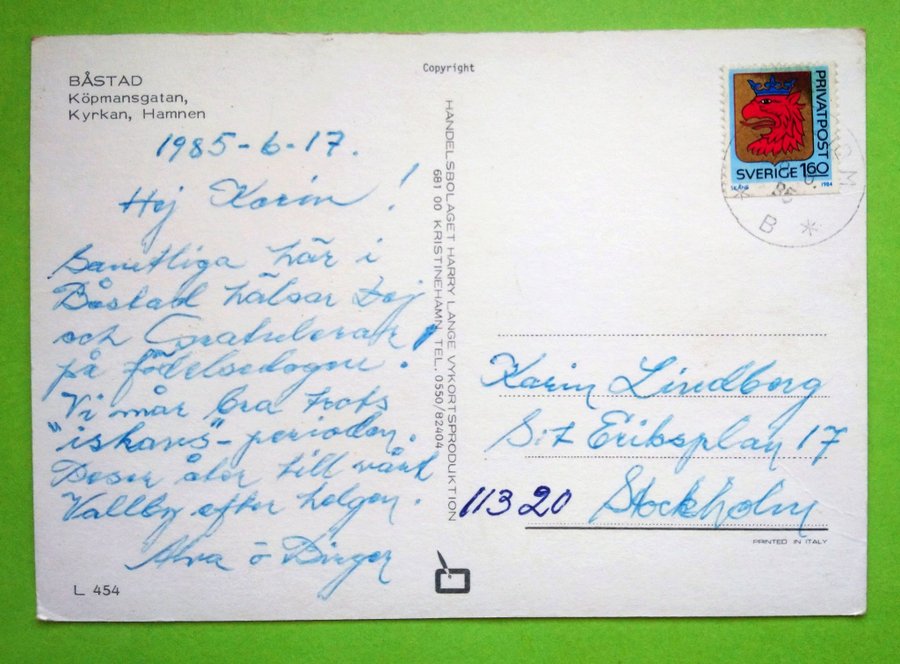 BÅSTAD
Köpmansgatan,
Kyrkan, Hamnen
1985-6-17.
Hej Karin!
Samtliga här i
Båstad hälsar Dej
och Gratulerar
på födelsedagen.
Vi mår bra trots
"iskans"-perioden.
Reser åter till vårt
Vallby efter helgen.
Alva o Birger
L 454
Copyright
HANDELSBOLAGET HARRY LANGE VYKORTSPRODUKTION
681 00 KRISTINEHAMN TEL. 0550/82404
PRIVATPOST
SVERIGE 1.60
SKÅNE 1984
85
B *
Karin Lindberg
S:t Eriksplan 17
11320 Stockholm
PRINTED IN ITALY